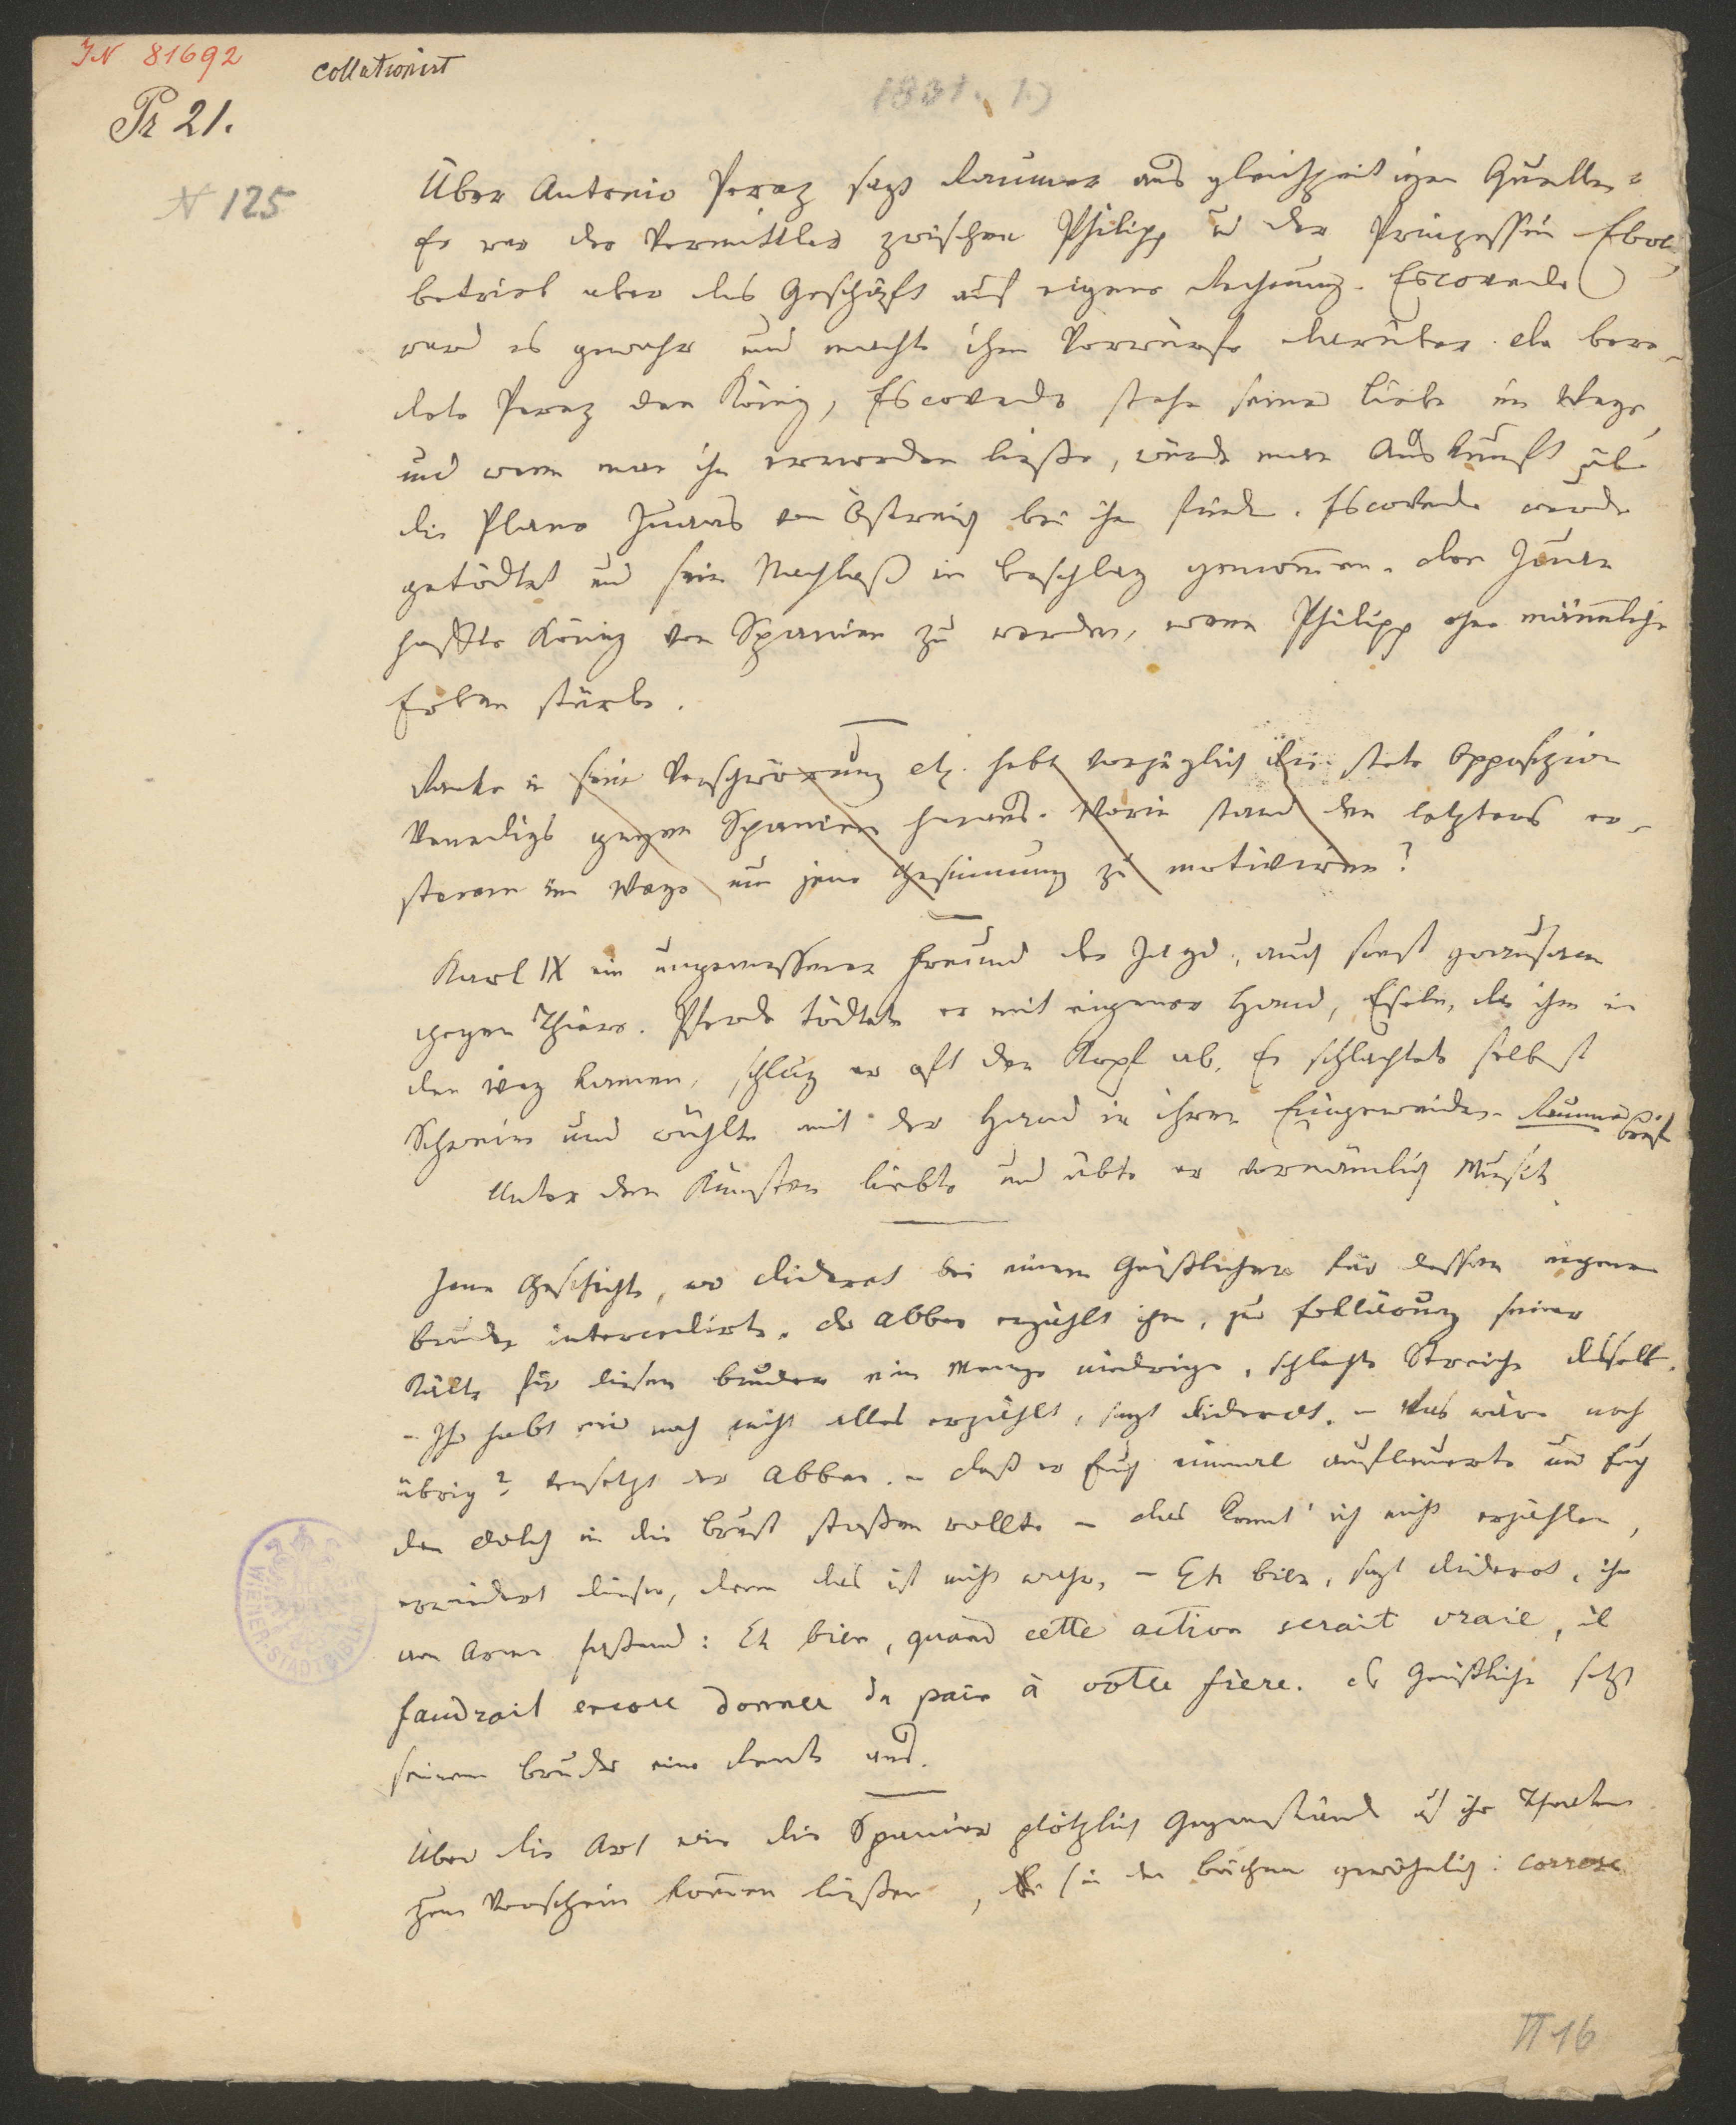 IN 81692
collationirt
Pr 21.
1831. 1.)
N 125
Über Antonio Perez sagt Raumer aus gleichzeitigen Quellen:
Er war der Vermittler zwischen Philipp u der Prinzessin Eboli,
betrieb aber das Geschäft auf eigene Rechnung. Escovedo
ward es gewahr und machte ihm Vorwürfe darüber. da bere-
dete Perez den König, Escovedo stehe seiner Liebe im Wege,
und wenn man ihn ermorden ließe, würde man Auskunft übe
die Plane Juans von Östreich bei ihm finden. Escovedo wurde
getödtet und sein Nachlaß in Beschlag genommen. don Juan
hoffte König von Spanien zu werden, wenn Philipp ohne männliche
Erben stürbe.
Ranke in seine Verschwörung etz. hebt vorzüglich die stete Opposizion
Venedigs gegen Spanien heraus. Worin stand den letztens er-
sterem im Wege um jene Gesinnung zu motiviren?
Karl IX ein ungemessener Freund der Jagd, auch sonst grausam
gegen Thiere. Pferde tödtete er mit eigener Hand, Eseln, die ihm in
den Weg kamen, schlug er oft den Kopf ab. Er schlachtete selbst
Schweine und wühlte mit der Hand in ihren Eingeweiden. Raumers Briefe
Unter den Künsten liebte und übte er vornämlich Musik
Jene Geschichte, wo Diderot bei einem Geistlichen für dessen eigenen
Bruder intercedirte. der Abbee erzählt ihm, zur Erklärung seiner
Kälte für diesen Bruder eine Menge niedrige, schlechte Streiche desselb.
– Ihr habt mir noch nicht alles erzählt, sagt Diderot. – Was wäre noch
übrig? versetzt der Abbee. – daß er Euch einmal auflauerte und Euch
den Dolch in die Brust stoßen wollte – das konnt' ich nicht erzählen,
erwidert dieser, denn das ist nicht wahr. – Eh bien, sagt Diderot, ihn
am Arme fassend: Eh bien, quand cette action serait vraie, il
faudrait encore donner du pain à votre frère. der Geistliche setzt
seinem Bruder eine Rente aus.
Über die Art wie die Spanier plötzlich Gegenstände auf ihr Theater
zum Vorschein kommen ließen, (in den Büchern gewöhnlich: correse
WIENER STADTBIBL
II 16